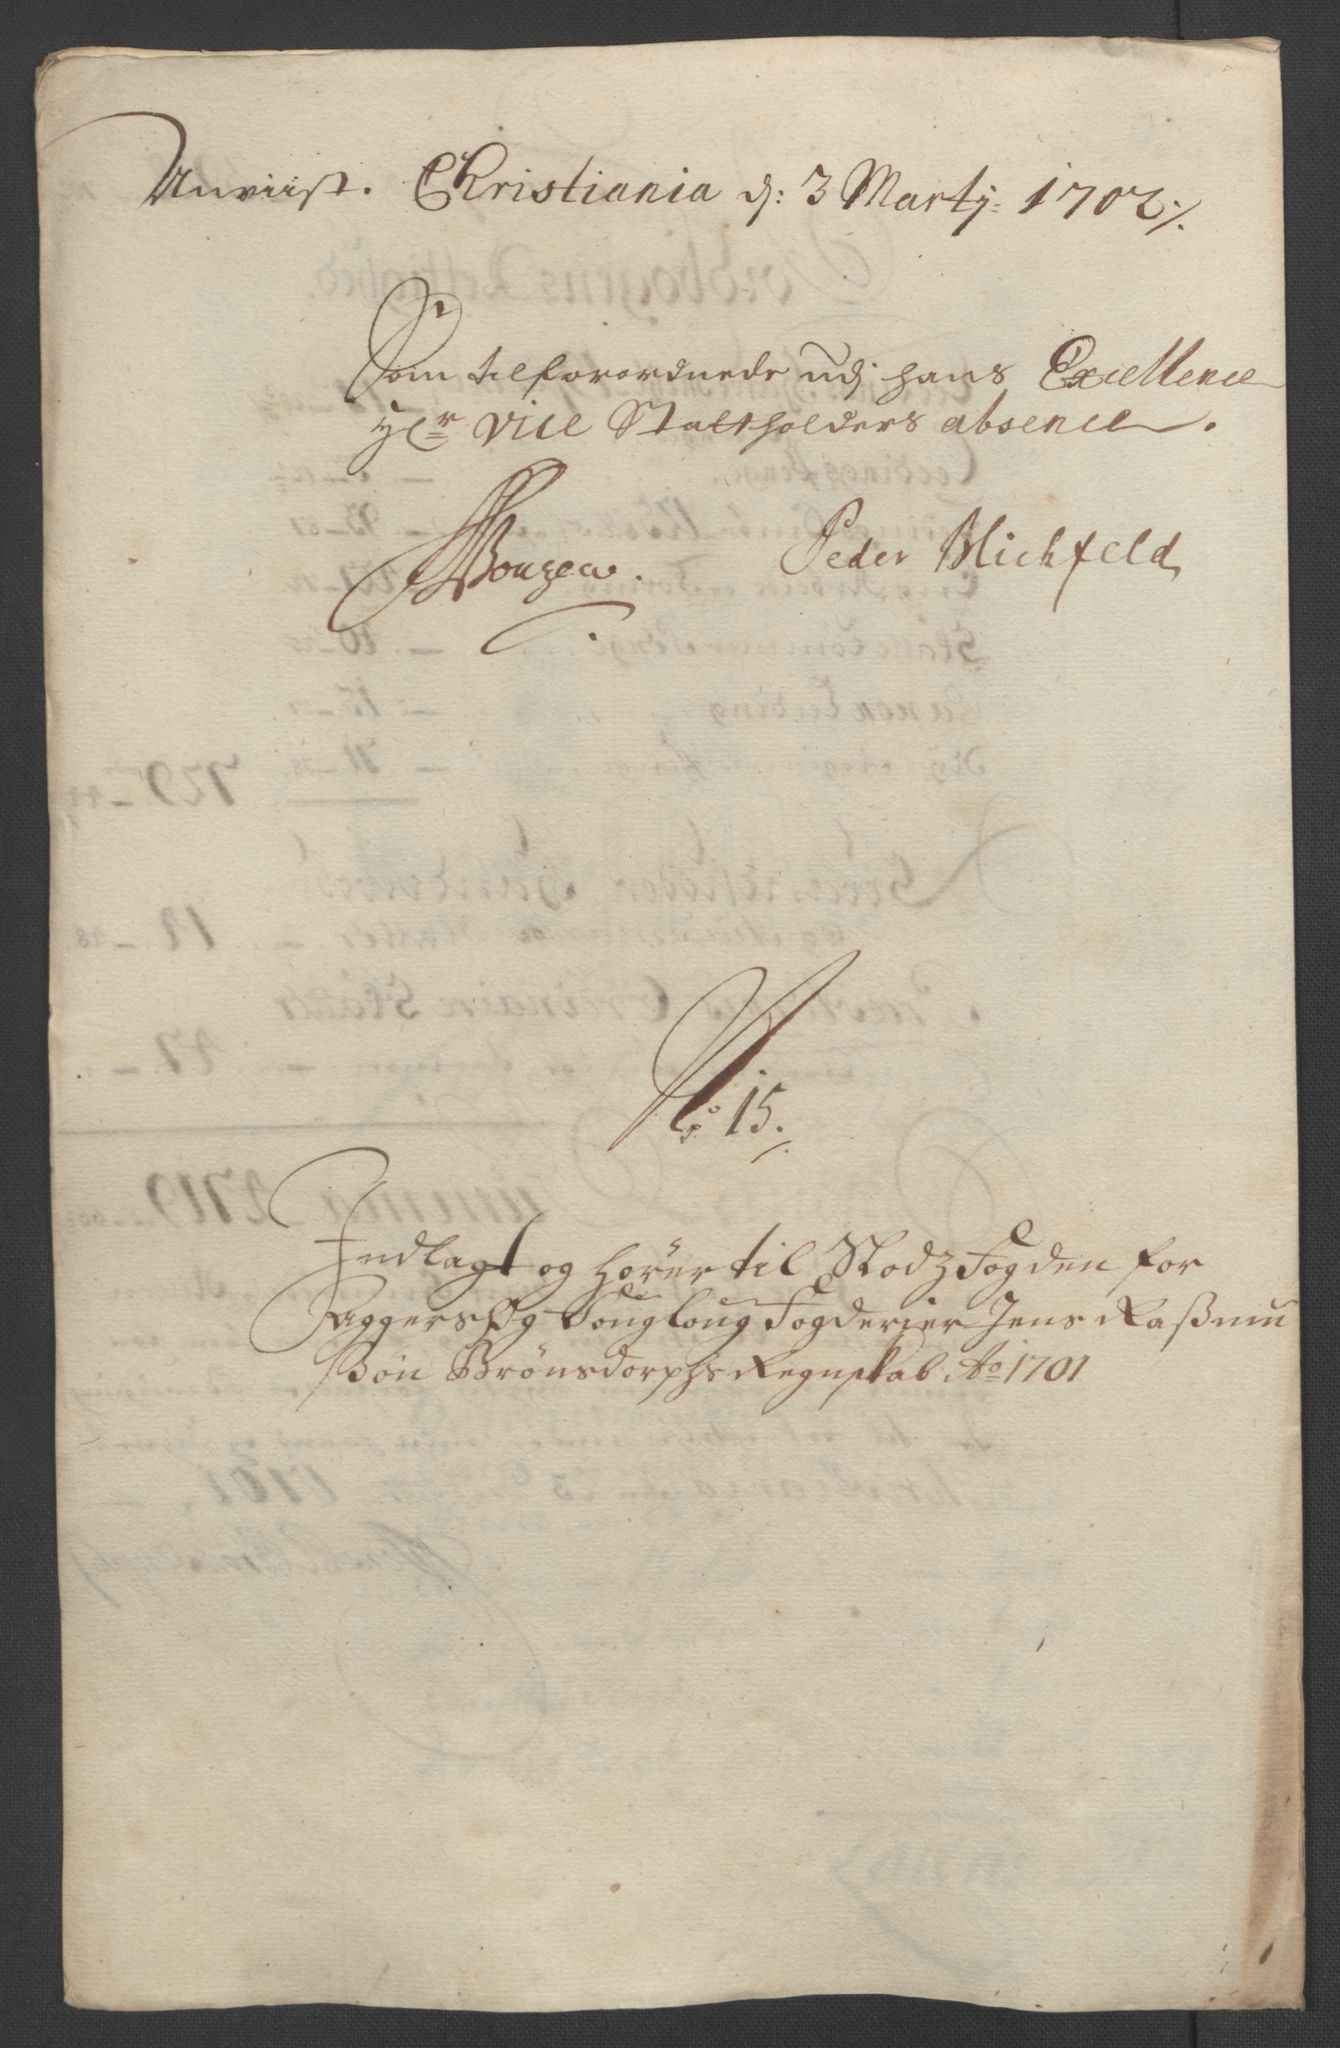 Anviist. Christiania d: 3 Martj: 1702 ⁒
Som tilforordnede udj hans Excellence
Hr Vice Statholders absence.
Peder Michfeld
No 15.
Indlagt og hører til Slodz Fogden for
Aggers og Fogderier Jens Raßmu
ßøn Brønsdorphs Regnskab Ao 1701